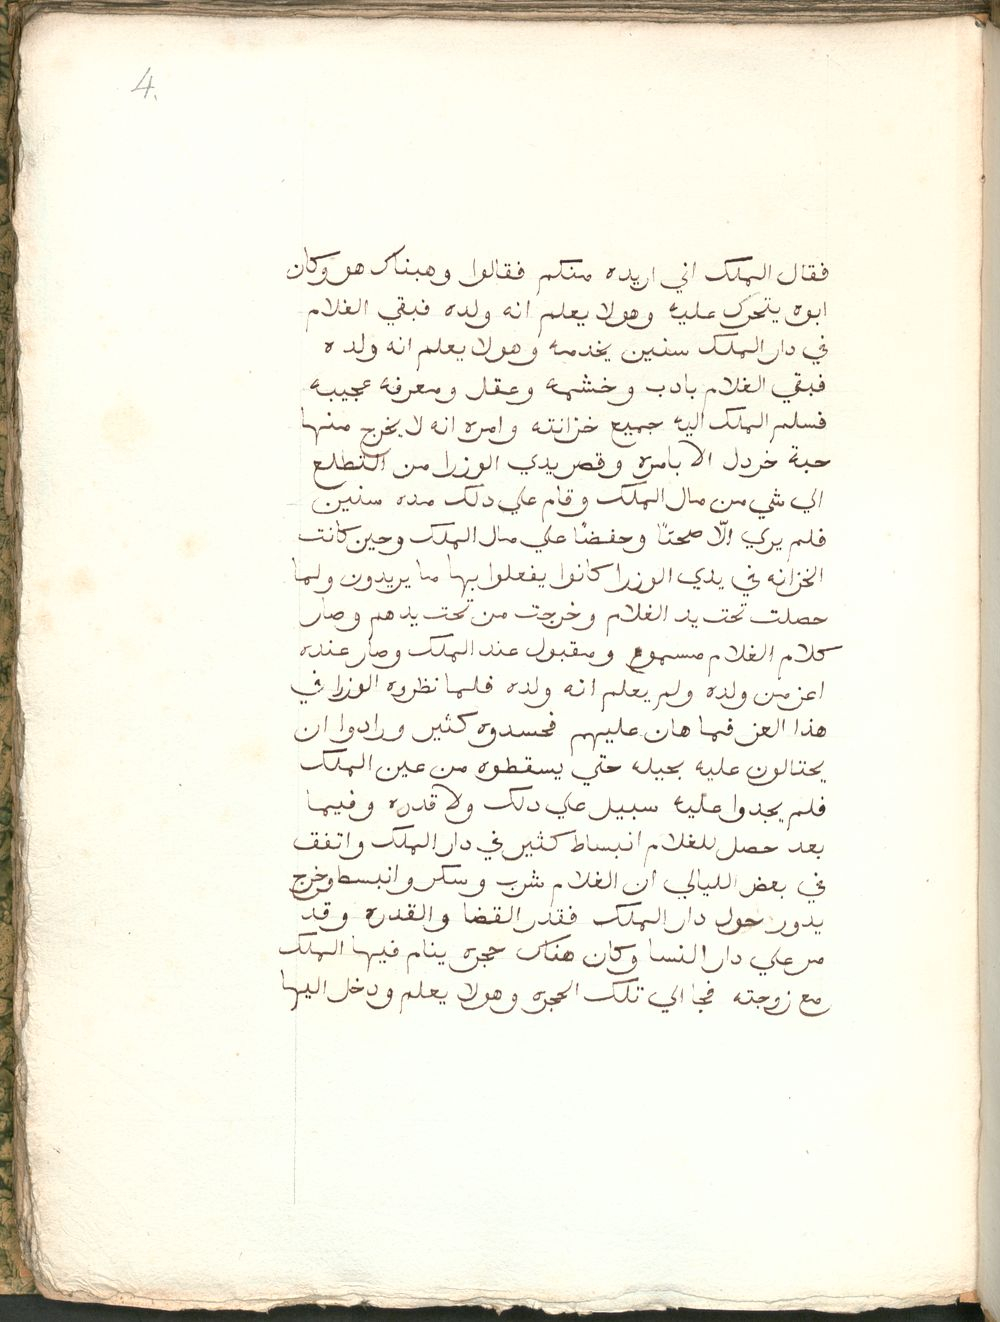 4.
فقال الملك اني اريده منكم فقالوا وهبناك هو وكان
ابوه يتحرك عليه وهو لا يعلم انه ولده فبقي الغلام
في دار الملك سنين يخدمه وهو لا يعلم انه ولده
فبقي الغلام بادب وخشمه وعقل ومعرفه عجيبه
فسلم الملك اليه جميع خزانته وامره انه لا يخرج منها
حبة خردل الا بامره وقصر يدي الوزرا من التطلع
الي شي من مال الملك وقام علي دلك مده سنين
فلم يري الّا صحتا وحفضا علي مال الملك وحين كانت
الخزانه في يدي الوزرا كانوا يفعلوا بها ما يريدون ولما
حصلت تحت يد الغلام وخرجت من تحت يدهم وصار
كلام الغلام مسموع ومقبول عند الملك وصار عنده
اعز من ولده ولم يعلم انه ولده فلما نظروه الوزرا في
هذا العز فما هان عليهم فحسدوه كثير ورادوا ان
يحتالون عليه بحيله حتي يسقطوه من عين الملك
فلم يجدوا عليه سبيل علي دلك ولا قدره وفيما
بعد حصل للغلام انبساط كثير في دار الملك واتفق
في بعض الليالي ان الغلام شرب وسكر وانبسط وخرج
يدور حول دار الملك فقدر القضا والقدره وقد
مر علي دار النسا وكان هناك حجره ينام فيها الملك
مع زوجته فجا الي تلك الحجره وهو لا يعلم ودخل اليها